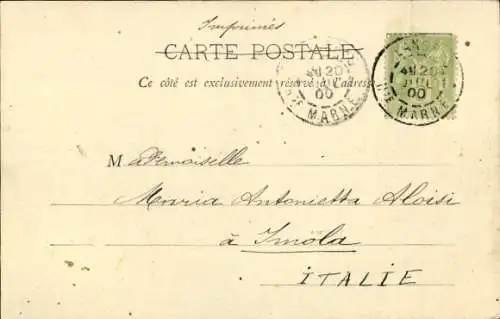 Imprimés
CARTE POSTALE
Ce côté est exclusivement réservé à l'adresse
4E 20
JUIL
00
HTE MARNE
20
JUIL
00
HTE MARNE
Mademoiselle
Maria Antonietta Aloisi
à Imola
ITALIE